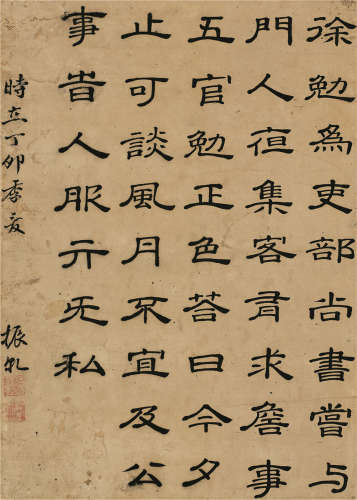 徐勉為吏部尚書嘗与
門人夜集客有求詹事
五官勉正色荅曰今夕
止可談風月不宜及公
事昔人服亓无私
時在丁卯季夏
振